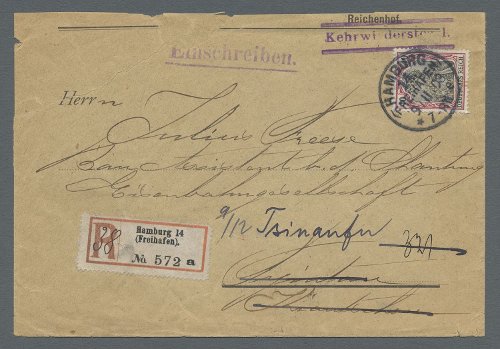 Reichenhof
Kehrwiederstr. 1.
Einschreiben.
HAMBURG
* 7-8
Herrn
Julius Freese
Bau Assistent b. d. Shantung
Eisenbahngesellschaft
Tsinanfu
321
R
38
Hamburg 14
(Freihafen).
№ 572 a